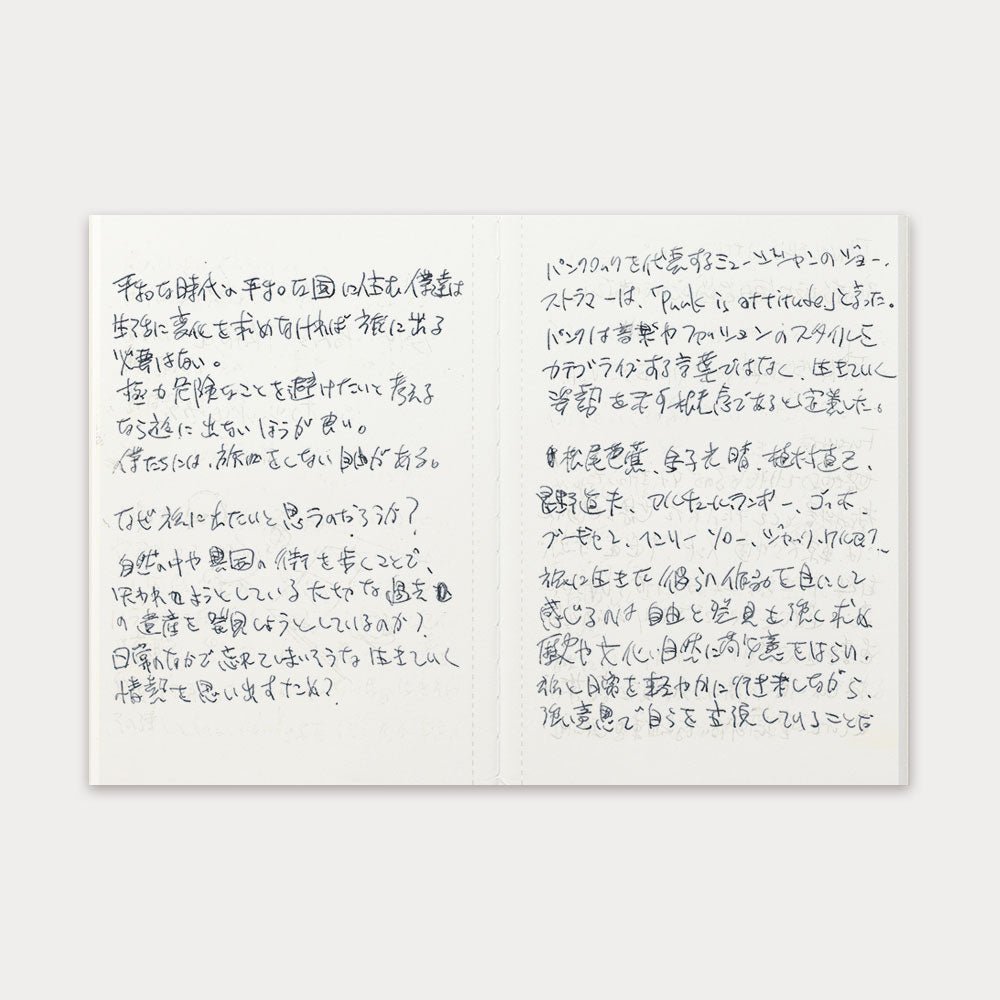 平和な時代の平和な国に住む僕達は
生活に変化を求めなければ旅に出る
必要はない。
極力危険なことを避けたいと考える
なら旅に出ないほうが良い。
僕たちには、旅をしない自由がある。
なぜ旅に出たいと思うのだろうか?
自然の中や異国の街を歩くことで、
失われようとしている大切な過去
の遺産を発見しようとしているのか?
日常のなかで忘れてしまいそうな生きていく
情熱を思い出すため?
パンクロックを代表するミュージシャンのジョー・
ストラマーは、「Punk is attitude.」と言った。
パンクは音楽やファッションのスタイルを
カテゴライズする言葉ではなく、生きていく
姿勢を示す根本であると定義した。
松尾芭蕉、金子光晴、植村直己、
星野道夫、アルチュール・ランボー、ゴッホ、
ゴーギャン、ヘンリー ソロー、ジャック・ケルアック…
旅に生きた彼らの作品を目にして
感じるのは自由と発見を強く求め
歴史や文化、自然に敬意をはらい、
旅と日常を軽やかに行き来しながら、
強い意思で自らを表現していることだ